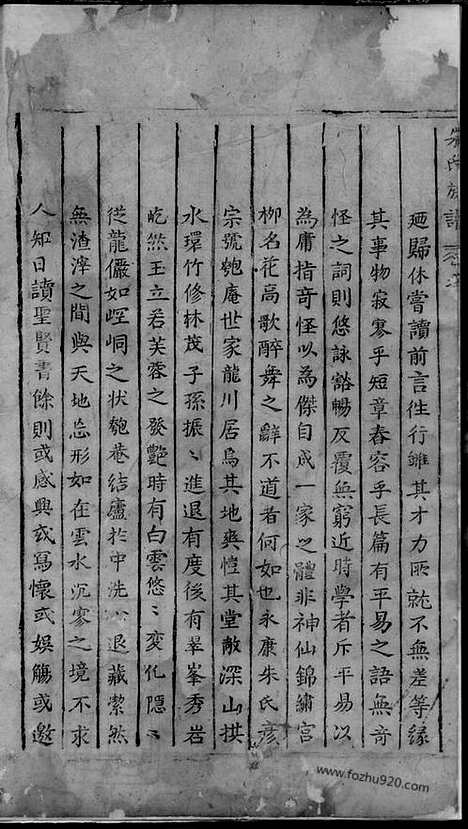 朱氏族譜
廼歸休嘗讀前言徃行雖其才力所就不無差等緣
其事物寂寥乎短章舂容乎長篇有平易之語無奇
怪之詞則悠詠豁暢反覆無窮近時學者斥平易以
為庸指奇怪以為傑自成一家之體非神仙錦繡宮
柳名花高歌醉舞之辭不道者何如也永康朱氏彥
宗號匏庵世家龍川居焉其地爽愷其堂敞深山拱
水環竹修林茂子孫振〻進退有度後有翠峯秀岩
屹然玉立若芙蓉之發艷時有白雲悠〻變化隱〻
從龍儼如崆峒之狀匏菴結廬於中洗心退藏潔然
無渣滓之間與天地忘形如在雲水沉寥之境不求
人知日讀聖賢書餘則或感興或寫懷或娛觴或邀
www.fozhu920.com